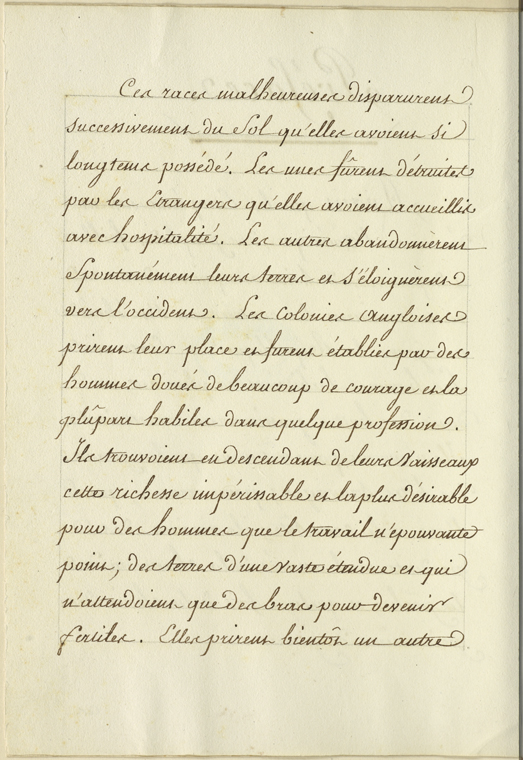 Ces races malheureuses disparurent
successivement du Sol qu'elles avoient si
longtems possédé. Les unes fûrent détruites
par les Etrangers qu'elles avoient accueillis
avec hospitalité. Les autres abandonnèrent
Spontanément leurs terres et s'éloignèrent
vers l'occident. Les Colonies Angloises
prirent leur place et furent établies par des
hommes doués de beaucoup de courage et la
plûpart habiles dans quelque profession.
Ils trouvoient en descendant de leurs Vaisseaux
cette richesse impérissable et la plus désirable
pour des hommes que le travail n'épouvante
point; des terres d'une vaste étendue et qui
n'attendoient que des bras pour devenir
fertiles. Elles prirent bientôt un autre